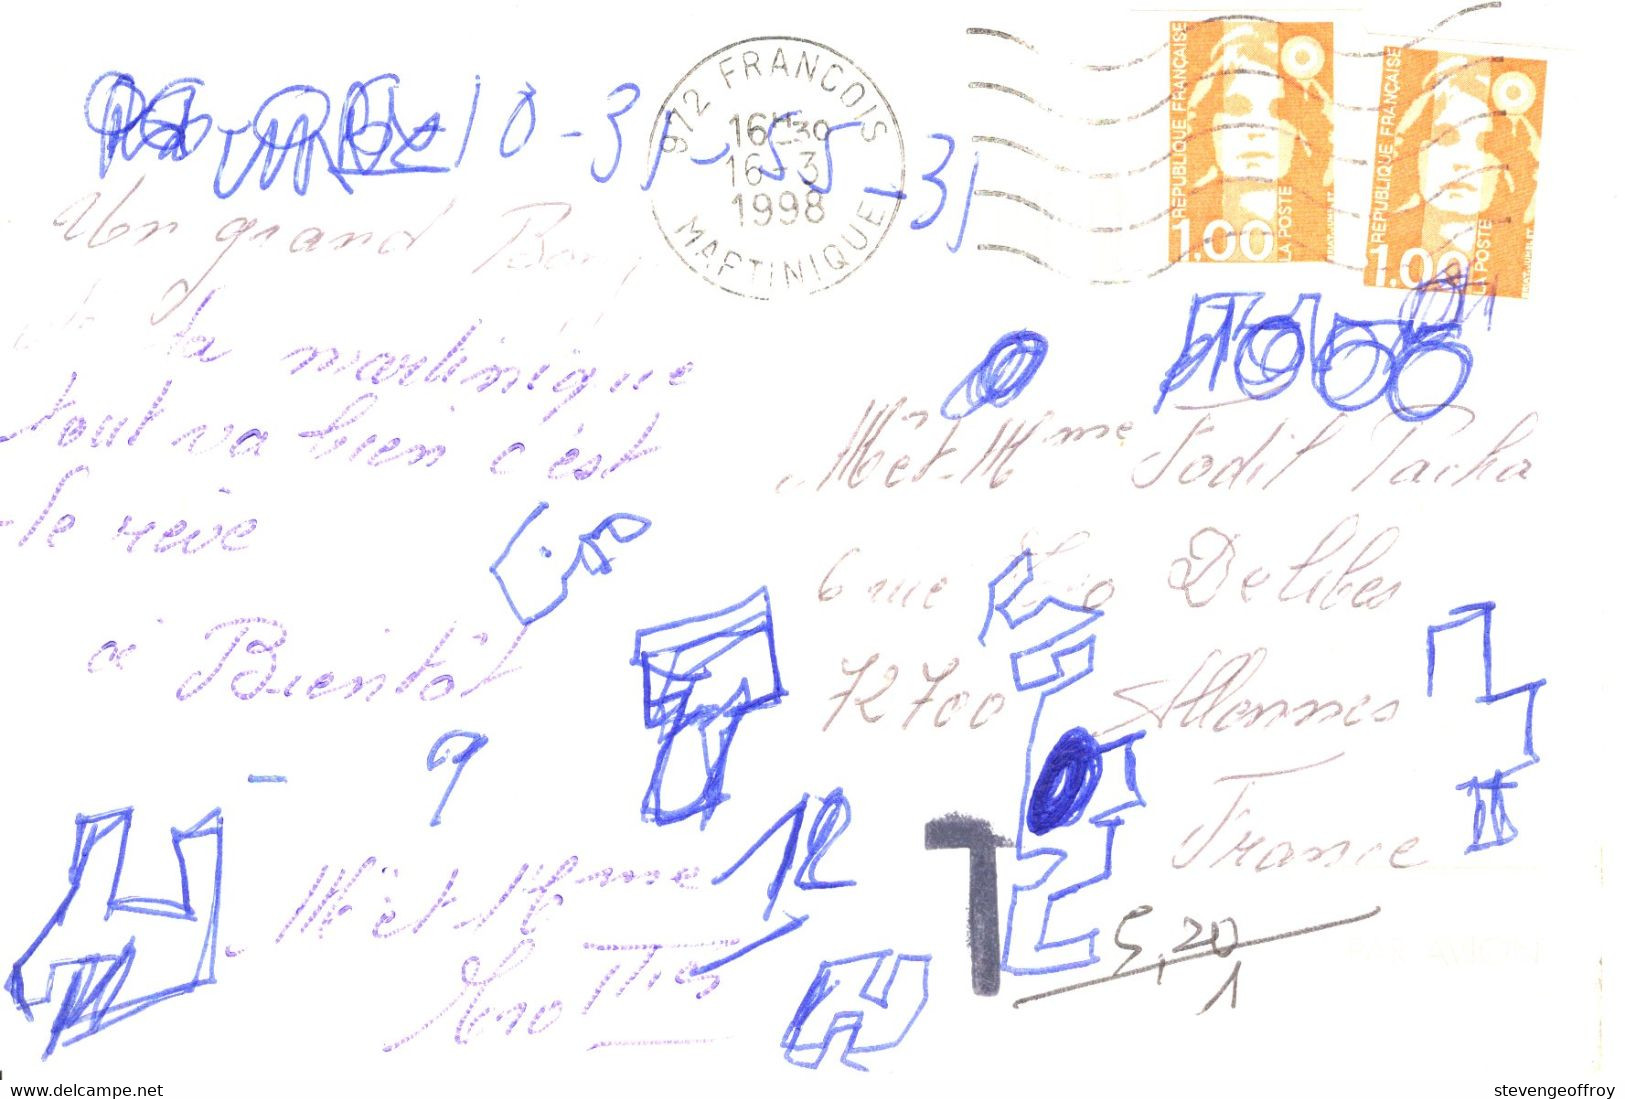 10-31-55-31
972 FRANCOIS
16H30
16-3
1998
MARTINIQUE
REPUBLIQUE FRANÇAISE
1.00
LA POSTE
REPUBLIQUE FRANÇAISE
1.00
LA POSTE
Un grand
la martinique
tout va bien c'est
le rêve
à Bientôt
- 9
12
Mr et Mme
Mr et Mme Fodil Pacha
6 rue Léo Delibes
72700 Allonnes
France
T
5,20
1
www.delcampe.net
stevengeoffroy